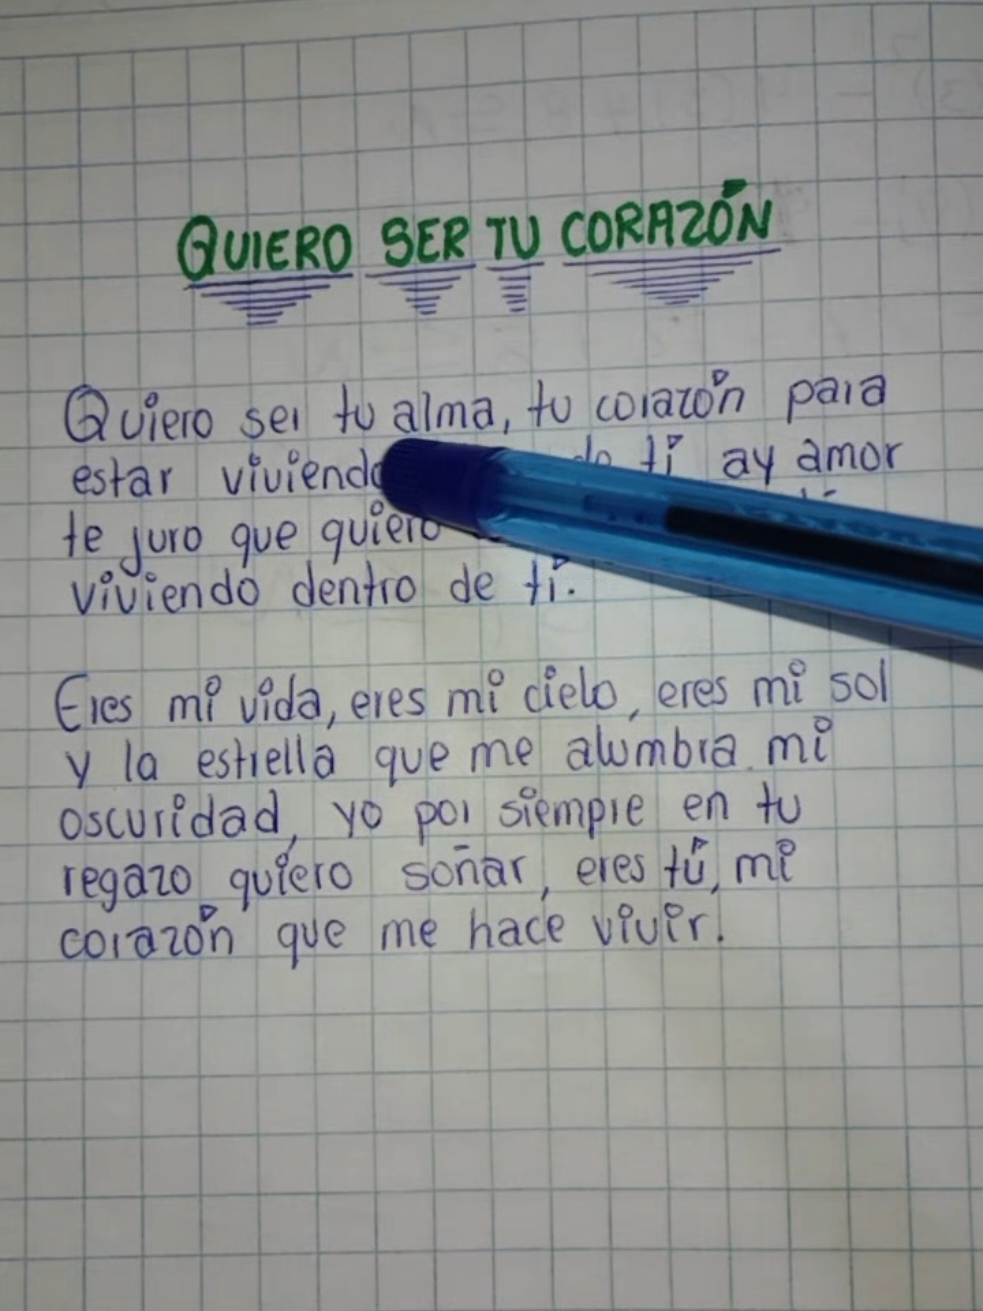 QUIERO SER TU CORAZÓN
Quiero ser tu alma, tu corazón para
estar viviendo ti ay amor
te juro que quiero
viviendo dentro de ti.
Eres mi vida, eres mi cielo, eres mi sol
y la estrella que me alumbra mi
oscuridad, yo por siempre en tu
regazo quiero soñar, eres tú, mi
corazón que me hace vivir.